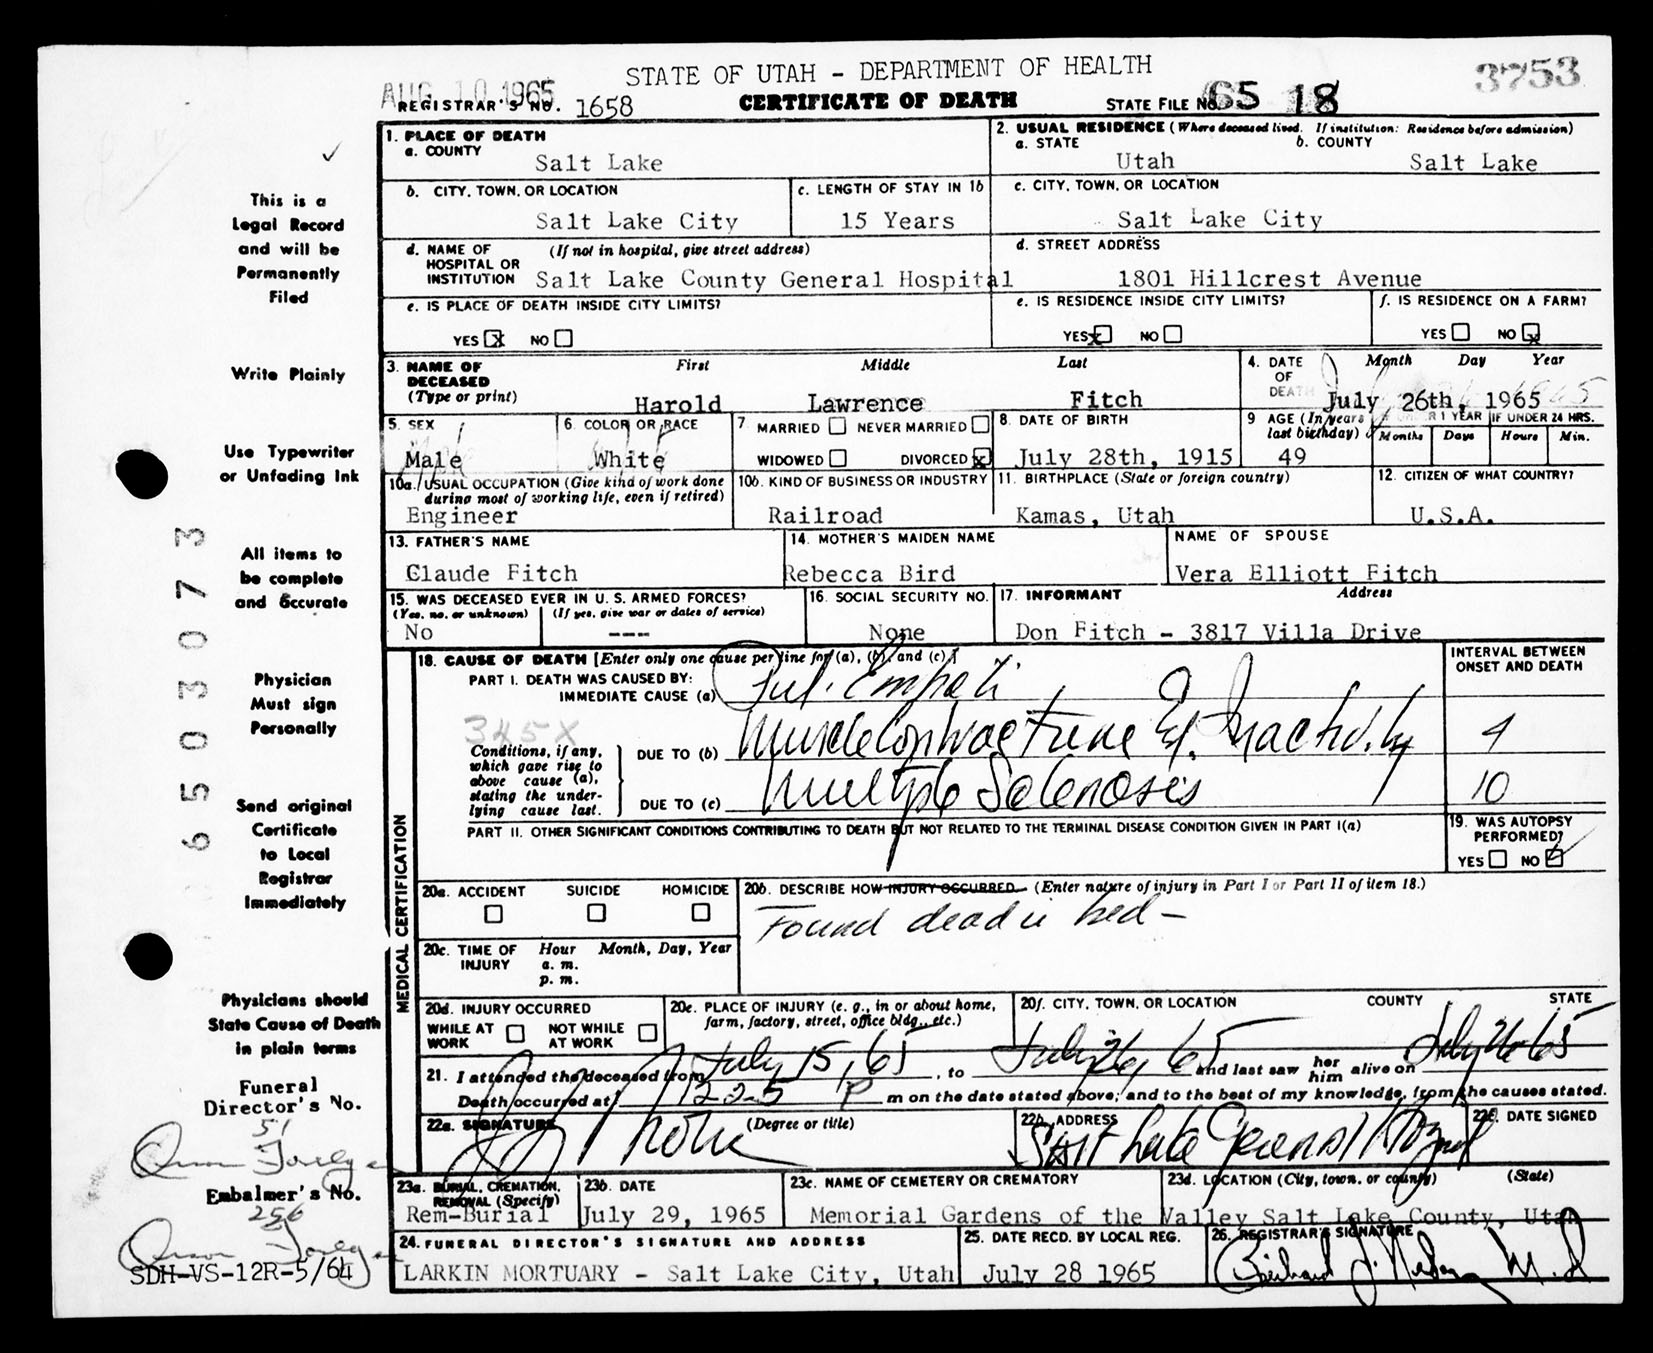 STATE OF UTAH - DEPARTMENT OF HEALTH
3753
AUG 10 1965
REGISTRAR'S NO. 1658
CERTIFICATE OF DEATH
STATE FILE NO. 65 18
1. PLACE OF DEATH
a. COUNTY
Salt Lake
2. USUAL RESIDENCE (Where deceased lived. If institution: Residence before admission)
a. STATE b. COUNTY
Utah Salt Lake
b. CITY, TOWN, OR LOCATION
Salt Lake City
c. LENGTH OF STAY IN 1b
15 Years
c. CITY, TOWN, OR LOCATION
Salt Lake City
d. NAME OF HOSPITAL OR INSTITUTION (If not in hospital, give street address)
Salt Lake County General Hospital
d. STREET ADDRESS
1801 Hillcrest Avenue
e. IS PLACE OF DEATH INSIDE CITY LIMITS?
YES x NO
e. IS RESIDENCE INSIDE CITY LIMITS?
YES x NO
f. IS RESIDENCE ON A FARM?
YES NO x
3. NAME OF DECEASED (Type or print)
First Middle Last
Harold Lawrence Fitch
4. DATE OF DEATH
Month Day Year
July 26th, 1965
5. SEX
Male
6. COLOR OR RACE
White
7 MARRIED NEVER MARRIED
WIDOWED DIVORCED x
8. DATE OF BIRTH
July 28th, 1915
9 AGE (In years last birthday)
49
IF UNDER 1 YEAR IF UNDER 24 HRS.
Months Days Hours Min.
10a. USUAL OCCUPATION (Give kind of work done during most of working life, even if retired)
Engineer
10b. KIND OF BUSINESS OR INDUSTRY
Railroad
11. BIRTHPLACE (State or foreign country)
Kamas, Utah
12. CITIZEN OF WHAT COUNTRY?
U.S.A.
13. FATHER'S NAME
Claude Fitch
14. MOTHER'S MAIDEN NAME
Rebecca Bird
NAME OF SPOUSE
Vera Elliott Fitch
15. WAS DECEASED EVER IN U. S. ARMED FORCES?
(Yes, no, or unknown) (If yes, give war or dates of service)
No ---
16. SOCIAL SECURITY NO.
None
17. INFORMANT Address
Don Fitch - 3817 Villa Drive
MEDICAL CERTIFICATION
18. CAUSE OF DEATH [Enter only one cause per line for (a), (b), and (c).]
INTERVAL BETWEEN ONSET AND DEATH
PART I. DEATH WAS CAUSED BY:
IMMEDIATE CAUSE (a)
345X
Conditions, if any, which gave rise to above cause (a), stating the under-lying cause last.
DUE TO (b) Muscle 4
DUE TO (c) Multiple Sclerosis 10
PART II. OTHER SIGNIFICANT CONDITIONS CONTRIBUTING TO DEATH BUT NOT RELATED TO THE TERMINAL DISEASE CONDITION GIVEN IN PART I(a)
19. WAS AUTOPSY PERFORMED?
YES NO ✓
20a. ACCIDENT SUICIDE HOMICIDE
20b. DESCRIBE HOW INJURY OCCURRED. (Enter nature of injury in Part I or Part II of item 18.)
Found dead in bed -
20c. TIME OF INJURY Hour Month, Day, Year
a. m.
p. m.
20d. INJURY OCCURRED
WHILE AT WORK NOT WHILE AT WORK
20e. PLACE OF INJURY (e. g., in or about home, farm, factory, street, office bldg., etc.)
20f. CITY, TOWN, OR LOCATION COUNTY STATE
21. I attended the deceased from July 15, 65, to July 26, 65 and last saw her him alive on July 26 65
Death occurred at 1225 P m on the date stated above; and to the best of my knowledge, from the causes stated.
22a. SIGNATURE (Degree or title)
22b. ADDRESS
Salt Lake General Hospital
22c. DATE SIGNED
23a. BURIAL, CREMATION, REMOVAL (Specify)
Rem-Burial
23b. DATE
July 29, 1965
23c. NAME OF CEMETERY OR CREMATORY
Memorial Gardens of the Valley
23d. LOCATION (City, town, or county) (State)
Salt Lake County, Utah
24. FUNERAL DIRECTOR'S SIGNATURE AND ADDRESS
LARKIN MORTUARY - Salt Lake City, Utah
25. DATE RECD. BY LOCAL REG.
July 28 1965
26. REGISTRAR'S SIGNATURE
M.D
This is a
Legal Record
and will be
Permanently
Filed
Write Plainly
Use Typewriter
or Unfading Ink
All items to
be complete
and accurate
Physician
Must sign
Personally
Send original
Certificate
to Local
Registrar
Immediately
Physicians should
State Cause of Death
in plain terms
Funeral
Director's No.
51
Embalmer's No.
256
SDH-VS-12R-5/64
6503073